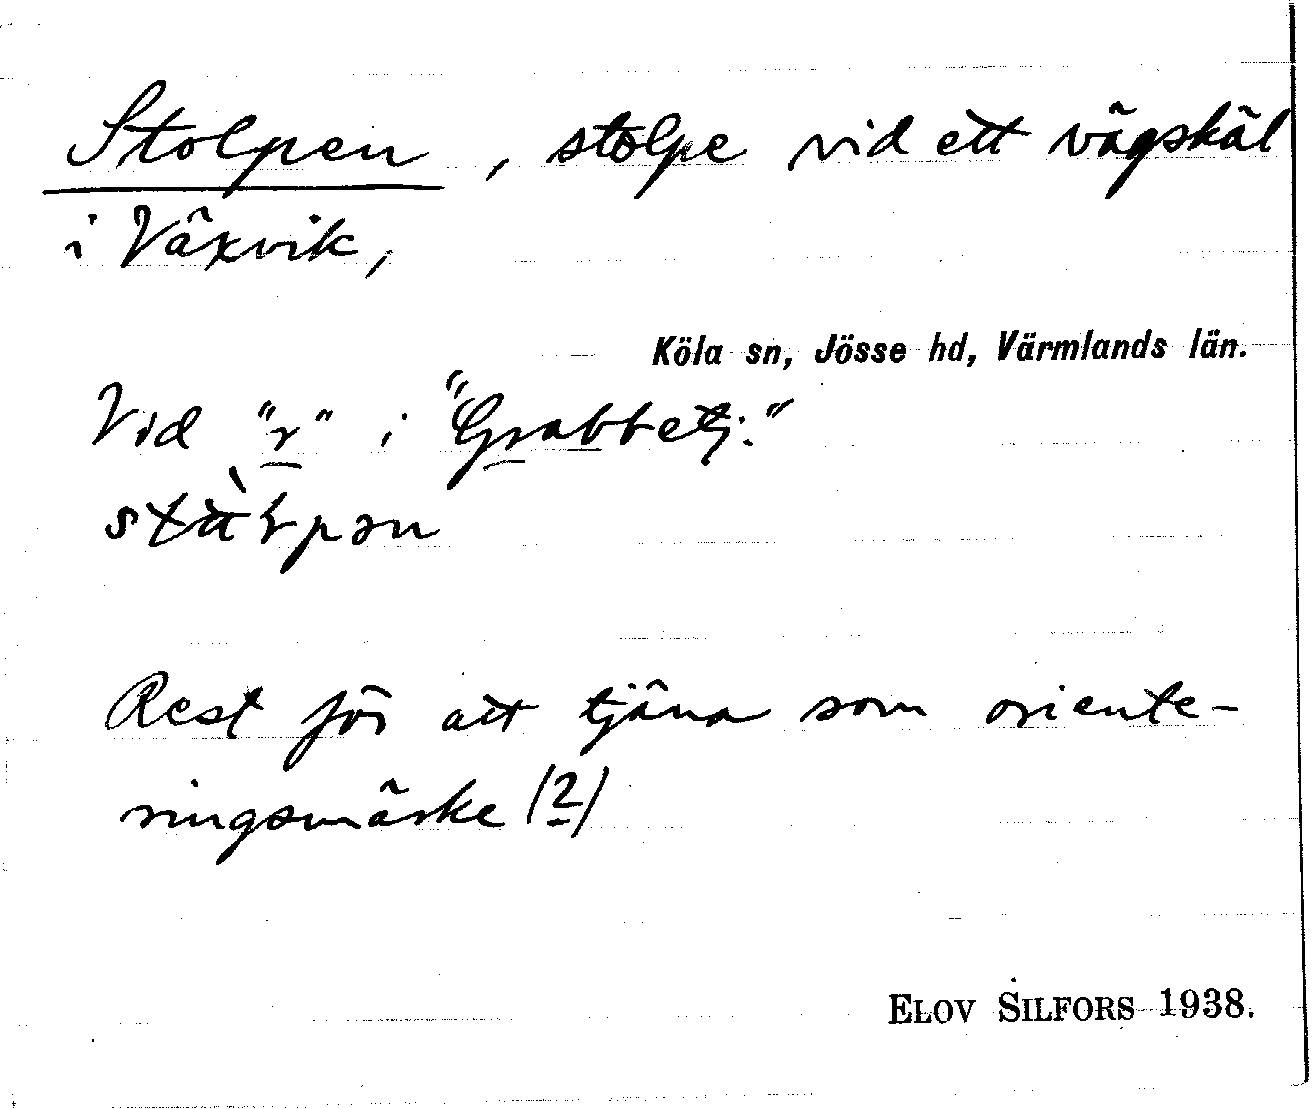 Stolpen, stolpe vid ett vägskäl
i Växvik,
Köla sn, Jösse hd, Värmlands län.
Vid "r" i "Grabbetj."
Rest för att tjäna som oriente-
ringsmärke (?)
ELOV SILFORS 1938.